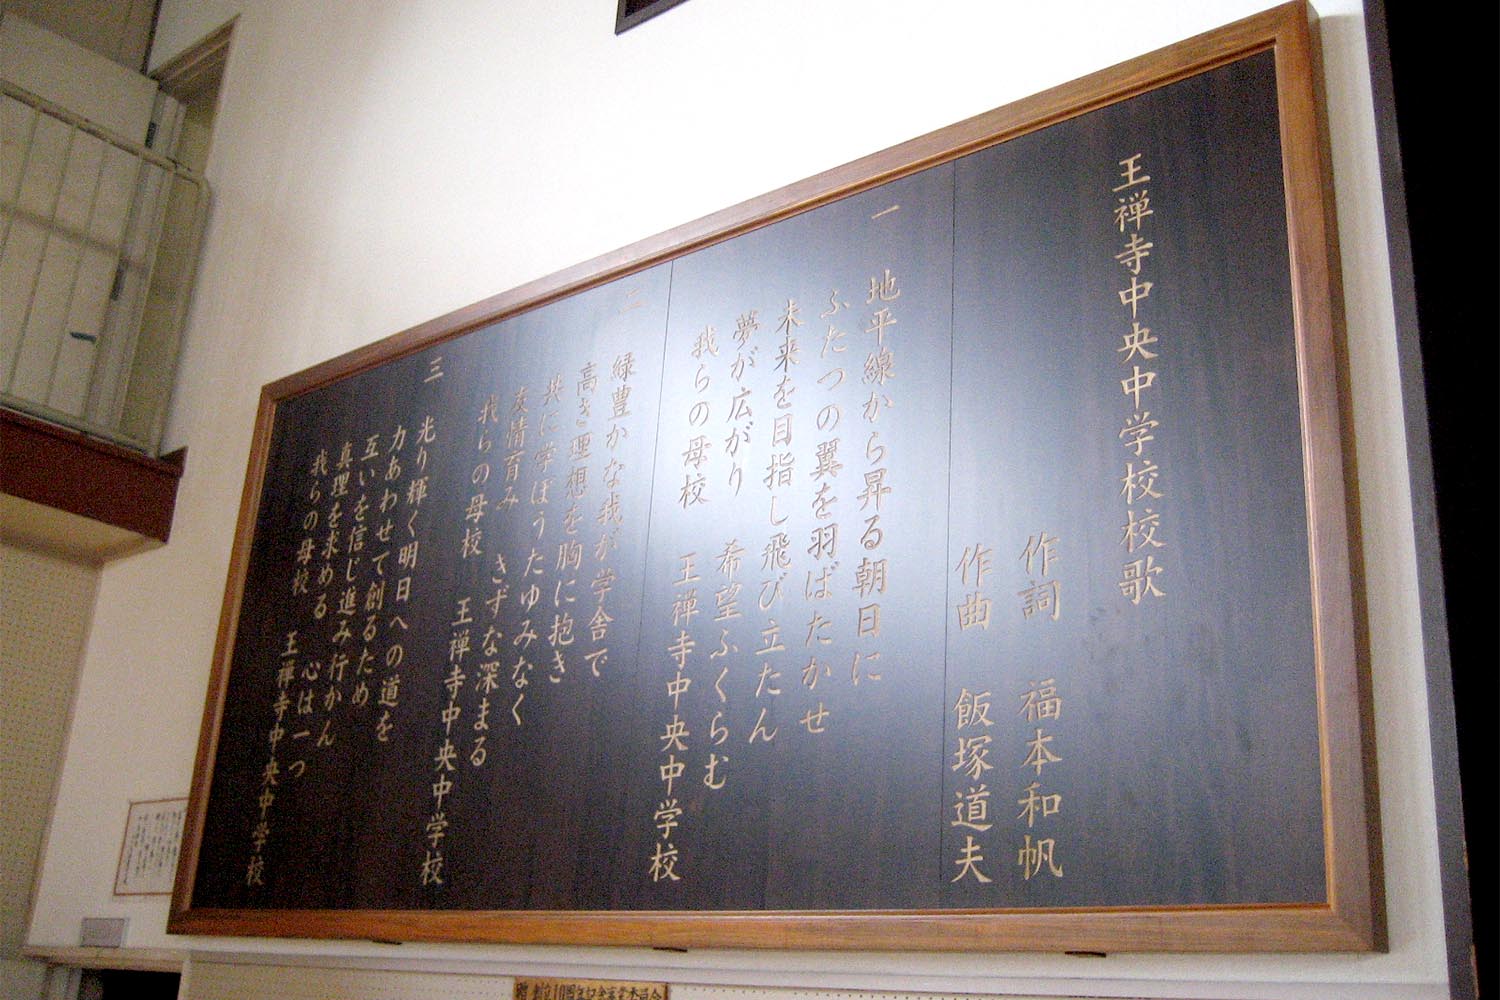 王禅寺中央中学校校歌
作詞　福本和帆
作曲　飯塚道夫
一　地平線から昇る朝日に
ふたつの翼を羽ばたかせ
未来を目指し飛び立たん
夢が広がり　希望ふくらむ
我らの母校　王禅寺中央中学校
二　緑豊かな我が学舎で
高き理想を胸に抱き
共に学ぼうたゆみなく
友情育み　きずな深まる
我らの母校　王禅寺中央中学校
三　光り輝く明日への道を
力あわせて創るため
互いを信じ進み行かん
真理を求める　心は一つ
我らの母校　王禅寺中央中学校
創立10周年記念事業委員会